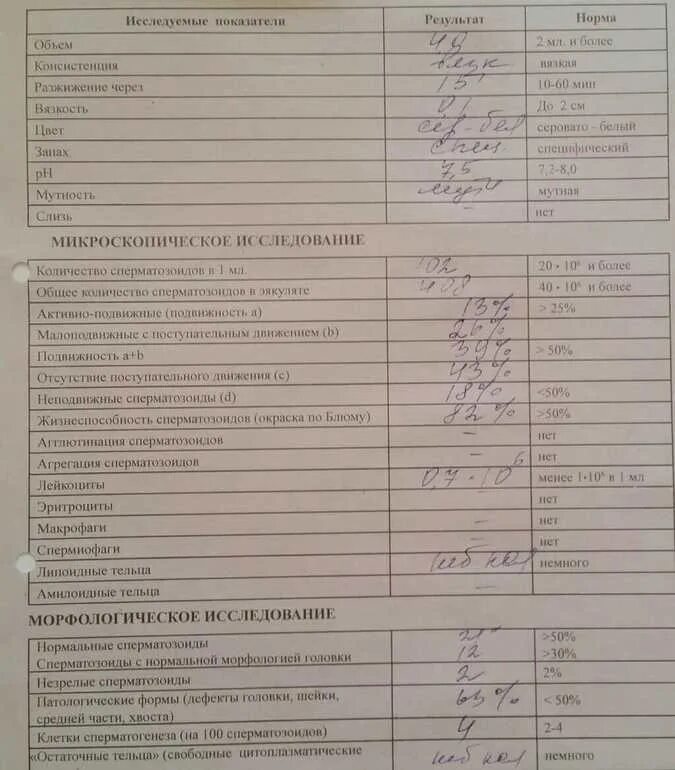 Исследуемые показатели Результат Норма
Объем 4,0 2 мл. и более
Консистенция вязк вязкая
Разжижение через 15' 10-60 мин
Вязкость 0,1 До 2 см
Цвет сер-бел серовато - белый
Запах спец. специфический
рН 7,5 7,2-8,0
Мутность мутн мутная
Слизь – нет
МИКРОСКОПИЧЕСКОЕ ИССЛЕДОВАНИЕ
Количество сперматозоидов в 1 мл. 102 20 * 10⁶ и более
Общее количество сперматозоидов в эякуляте 408 40 * 10⁶ и более
Активно-подвижные (подвижность а) 13% > 25%
Малоподвижные с поступательным движением (b) 26%
Подвижность a+b 39% > 50%
Отсутствие поступательного движения (c) 43%
Неподвижные сперматозоиды (d) 18% <50%
Жизнеспособность сперматозоидов (окраска по Блюму) 82% >50%
Агглютинация сперматозоидов – нет
Агрегация сперматозоидов – нет
Лейкоциты 0,7 · 10⁶ менее 1*10⁶ в 1 мл
Эритроциты нет
Макрофаги – нет
Спермиофаги – нет
Липоидные тельца неб кол немного
Амилоидные тельца –
МОРФОЛОГИЧЕСКОЕ ИССЛЕДОВАНИЕ
Нормальные сперматозоиды >50%
Сперматозоиды с нормальной морфологией головки 12 >30%
Незрелые сперматозоиды 2 2%
Патологические формы (дефекты головки, шейки, 63% < 50%
средней части, хвоста)
Клетки сперматогенеза (на 100 сперматозоидов) 4 2-4
«Остаточные тельца» (свободные цитоплазматические неб кол немного